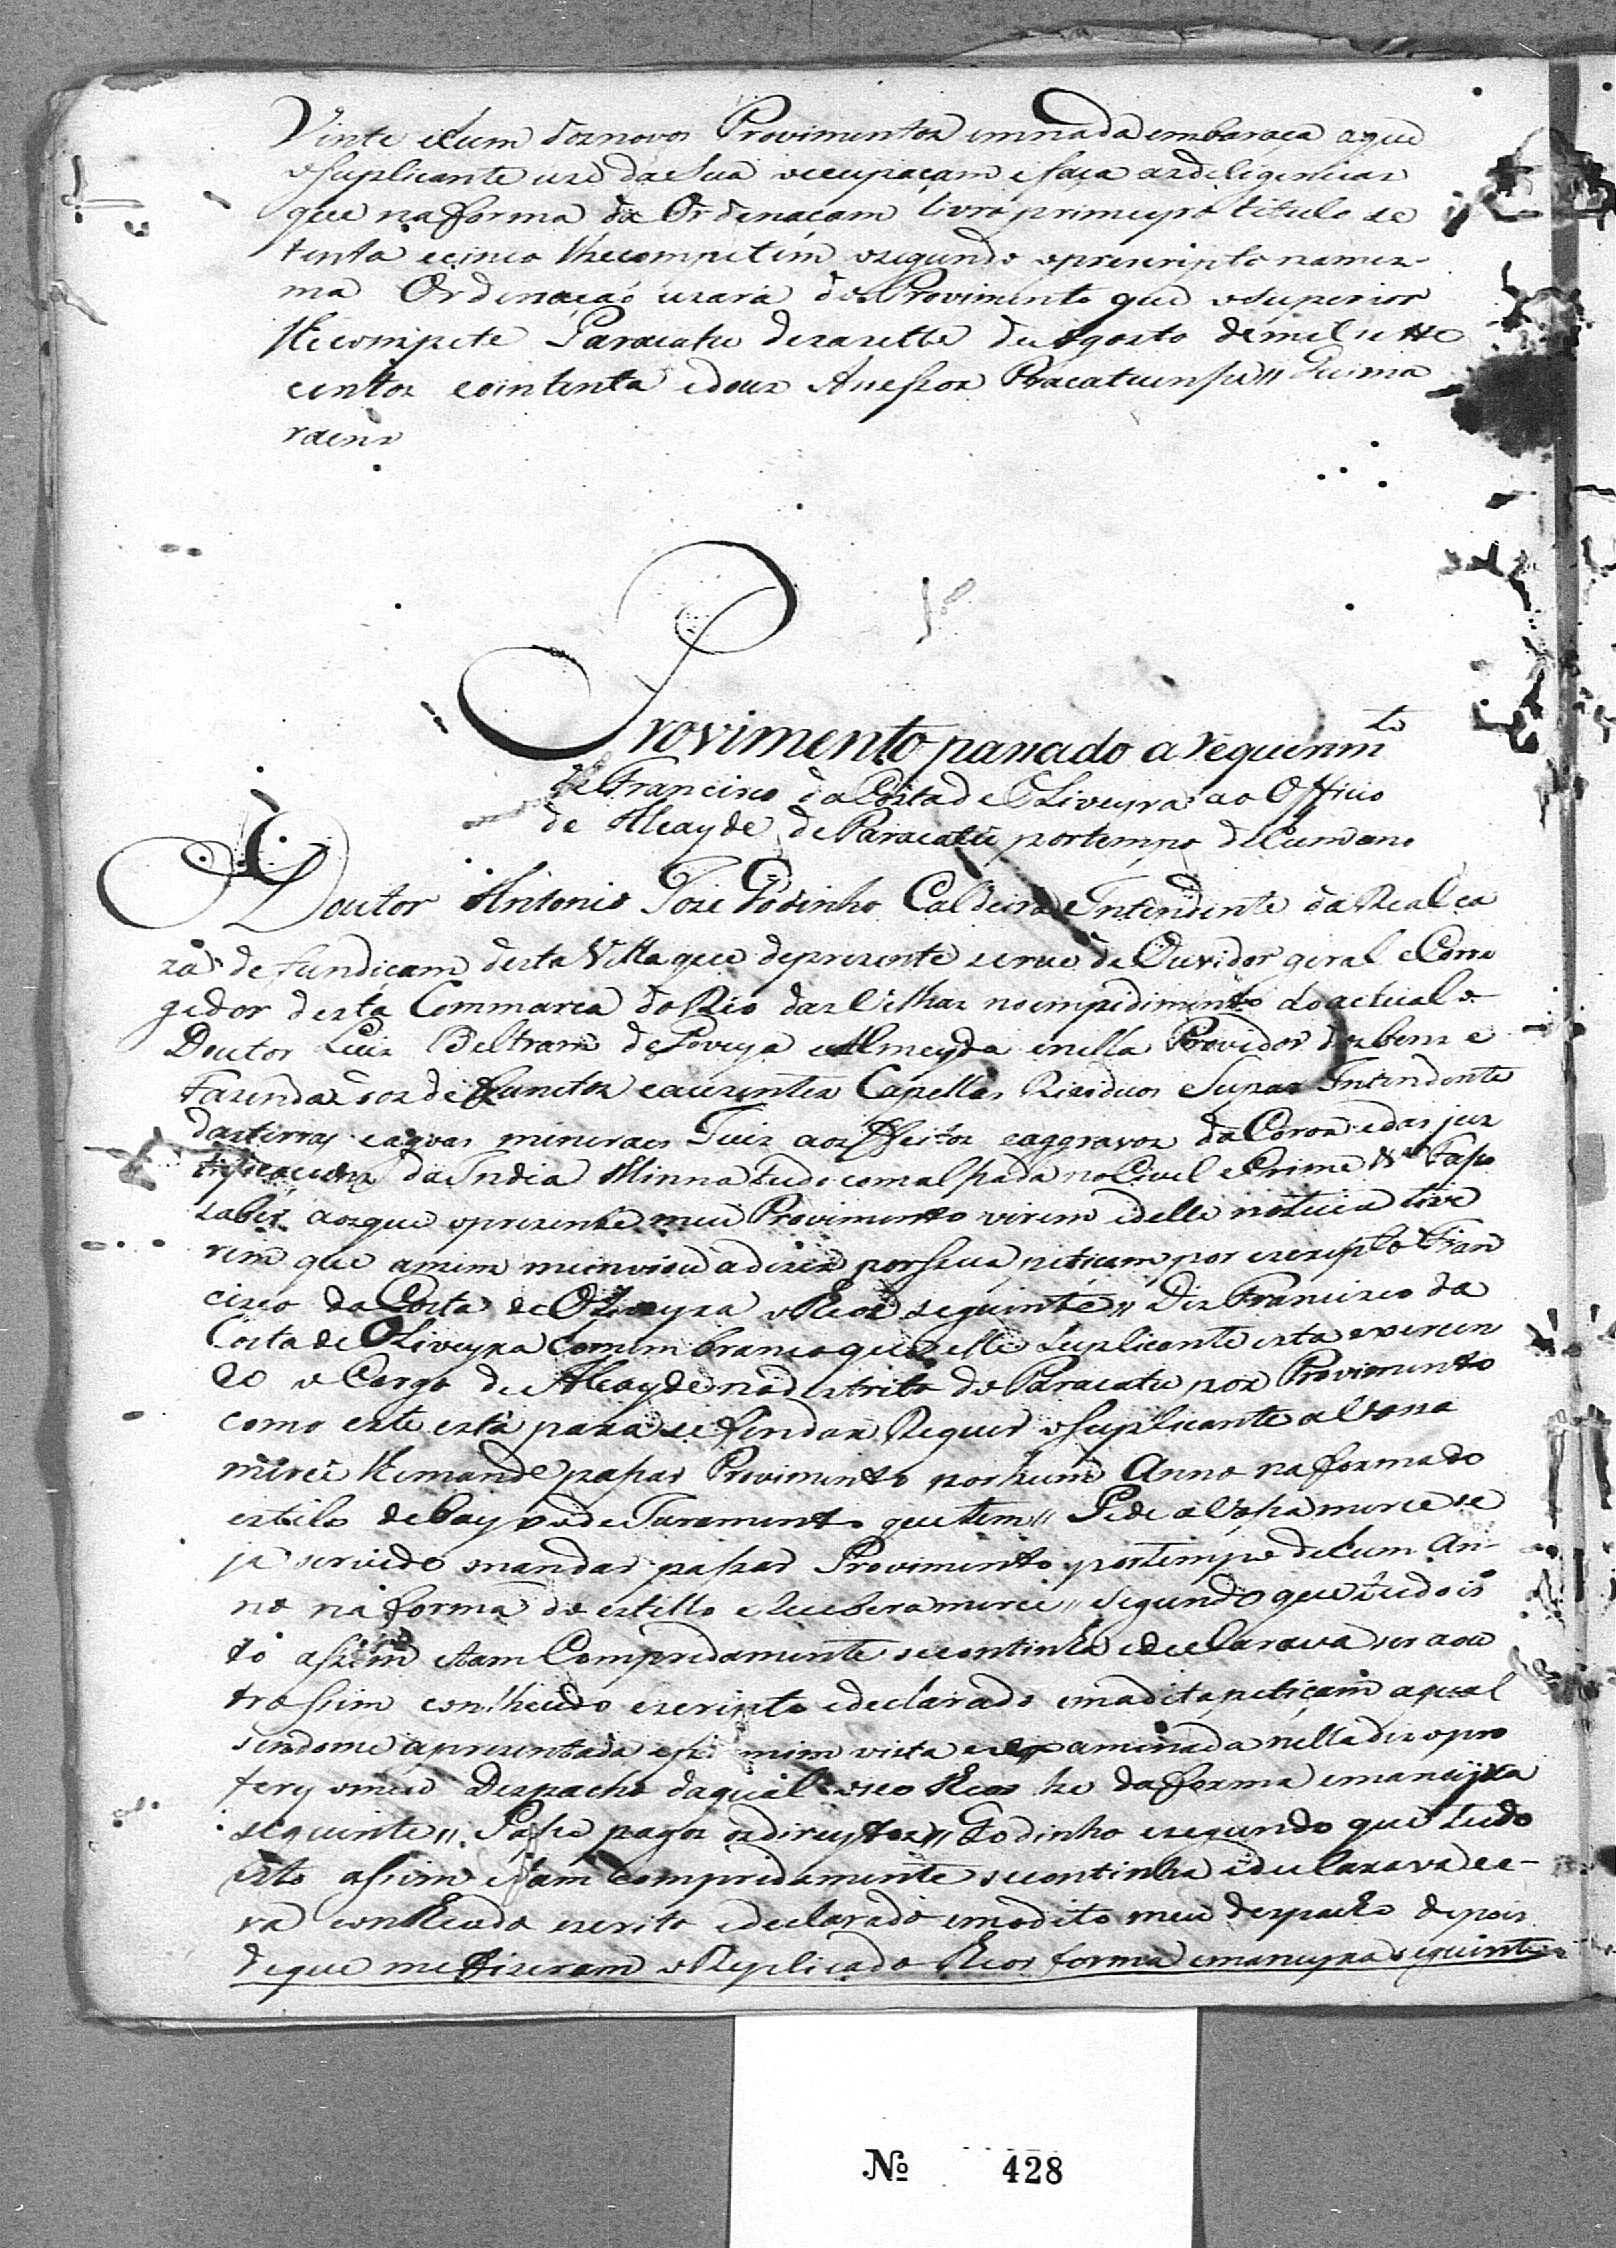 Vinte ehum dos novos Provimentos emnada embaraça aque
osuplicante uze da sua occupaçam efaça asdeligencias
que na forma da Ordenaçam Livro primeyro titulo se
tenta ecinco lhecompetém esegundo oprescripto names-
ma Ordenaçaõ uzará do Provimento que osuperior
lhecompete Paracatu dezasette de Agosto demil sette
centos ecincoenta edous Anessor Pracatuense//
Provimento passado a requerim.to
de Francisco da Costa de Oliveyra ao Officio
de Alcayde de Paracatu portempo dehum anno
Doutor Antonio Joze Godinho Caldeira Intendente da Real ca
za de fundiçam desta Villa que deprezente serve de Ouvidor geral eCorre
gedor desta Commarca do Rio das Velhas noimpedimento do actual o
Doutor Luis Beltram de Gouveya eAlmeyda enella Provedor dos bens e
Fazendas dos defunctos eauzentes Capellas Reziduos eSuper Intendente
dasterras eaguas mineraes Juis dos Feitos eaggravos da Coroa edas jus
tificacoens da India Minna tudo comalsada noCivel eCrime &.a Fasso
saber aosque oprezente meu Provimento virem edelle noticia tive
rem que amim meinviou adizer porsua petiçam por escripto Fran
cisco da Costa de Oliveyra oTheor seguinte// Dis Francisco da
Costa de Oliveyra homem branco que elle Suplicante esta exercen
do o Cargo de Alcayde no destrito do Paracatu por Provimento
como este está para se findar Requer osuplicante aVossa
mercê lhemande passar Provimento porhum Anno na forma do
estilo debayxo de Juramento que tem// Pede aVossa merce se
ja servido mandar passar Provimento portempo dehum An-
no na forma do estillo eRecebera mercê// segundo que tudo is
to assim etam Compridamente secontinha edeclarava
trossim conthiudo escripto edeclarado emadita petiçam aqual
sendome aprezentada epor mim vista eexaminada nella dey epro
fery omeu Despacho daqual oseo theor he da forma emaneyra
seguinte// Passe pagos osdireytos// Godinho esegundo que tudo
isto assim etam compridamente secontinha edeclarava ee-
ra conthiudo escrito edeclarado emodito meu despacho depois
deque mefizeram oReplicado theor forma emaneyra seguinte
Nº 428